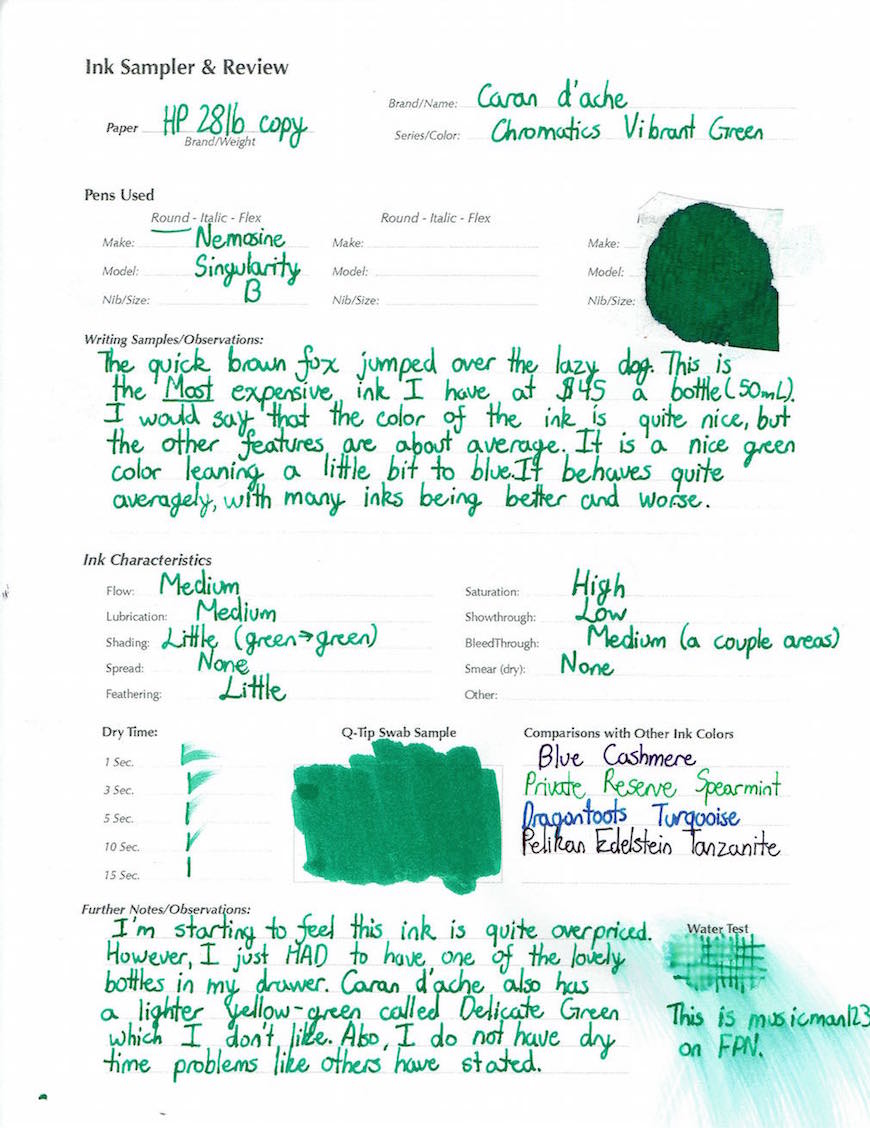 Ink Sampler & Review
Paper HP 28lb copy
Brand/Weight
Brand/Name: Caran d'ache
Series/Color: Chromatics Vibrant Green
Pens Used
Round - Italic - Flex
Make: Nemosine
Model: Singularity
Nib/Size: B
Round - Italic - Flex
Make:
Model:
Nib/Size:
Make:
Model:
Nib/Size:
Writing Samples/Observations:
The quick brown fox jumped over the lazy dog. This is
the Most expensive ink I have at $45 a bottle (50mL).
I would say that the color of the ink is quite nice, but
the other features are about average. It is a nice green
color leaning a little bit to blue. It behaves quite
averagely, with many inks being better and worse.
Ink Characteristics
Flow: Medium
Lubrication: Medium
Shading: Little (green→green)
Spread: None
Feathering: Little
Saturation: High
Showthrough: Low
BleedThrough: Medium (a couple areas)
Smear (dry): None
Other:
Dry Time:
1 Sec.
3 Sec.
5 Sec.
10 Sec.
15 Sec.
Q-Tip Swab Sample
Comparisons with Other Ink Colors
Blue Cashmere
Private Reserve Spearmint
Dragontoots Turqooise
Pelikan Edelstein Tanzanite
Further Notes/Observations:
I'm starting to feel this ink is quite overpriced.
However, I just HAD to have one of the lovely
bottles in my drawer. Caran d'ache also has
a lighter yellow-green called Delicate Green
which I don't like. Also, I do not have dry
time problems like others have stated.
Water Test
This is musicman123
on FPN.